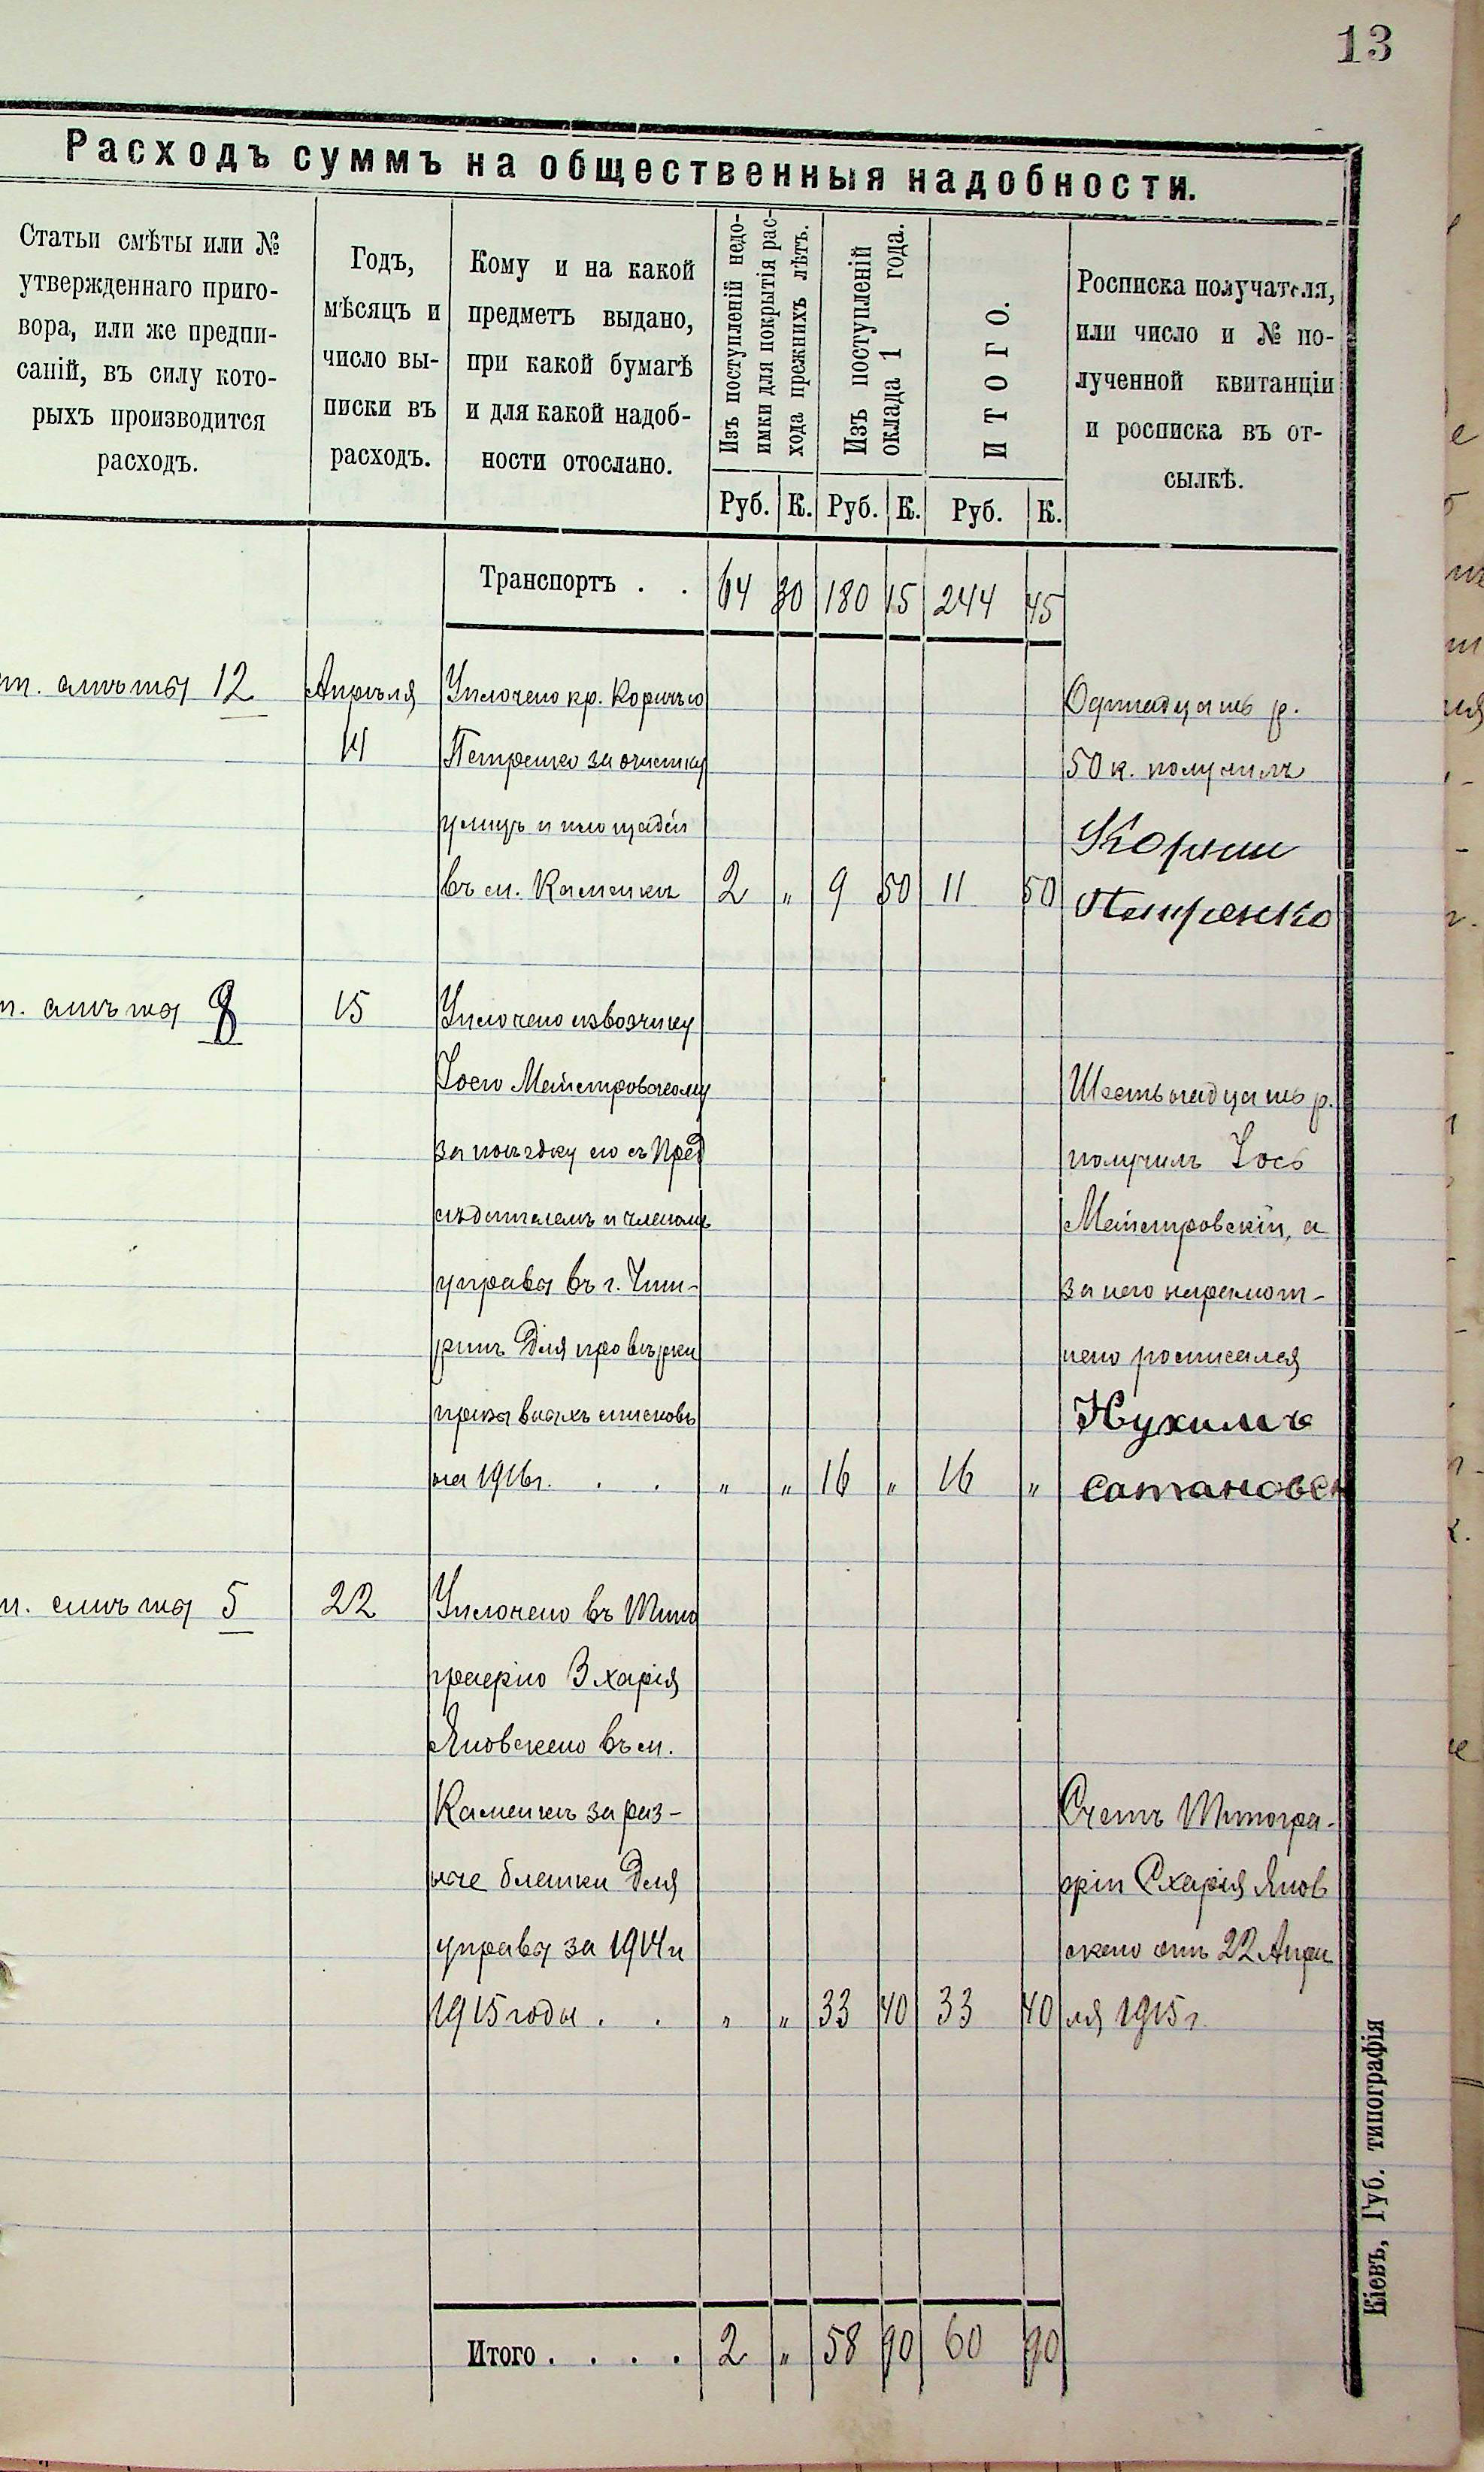 13
Расходъ суммъ на общественныя надобности.
Статьи смѣты или №
утвержденнаго приго-
вора, или же предпи-
саній, въ силу кото-
рыхъ производится
расходъ.
Годъ,
мѣсяцъ и
число вы-
писки въ
расходъ.
Кому и на какой
предметъ выдано,
при какой бумагѣ
и для какой надоб-
ности отослано.
Изъ поступленій недо-
имки для покрытія рас-
хода прежнихъ лѣтъ.
Изъ поступленій
оклада 1 года.
ИТОГО.
Росписка получателя,
или число и № по-
лученной квитанціи
и росписка въ от-
сылкѣ.
Руб. К. Руб. К. Руб. К.
Транспортъ . . 64 30 180 15 244 45
т. смѣты 12 Апрѣля Уплочено кр. Корнѣю
14 Петренко за очистку
улицъ и площадей
въ м. Каменкѣ 2 „ 9 50 11 50
Одинадцать р.
50 к. получилъ
Корни
Петренко
т. смѣты 8 15 Уплочено извозчику
Іосю Майстровскому
за поѣздку его съ Пред
сѣдателемъ и членомъ
управы въ г. Чиги-
ринъ для провѣрки
призывныхъ списковъ
на 1916 г. . . „ „ 16 „ 16 „
Шестьнадцать р.
получилъ Іось
Майстровскій, а
за него неграмот-
наго росписался
Нухимъ
Сатановск
т. смѣты 5 22 Уплочено въ Типо
графію Захарія
Яновскаго въ м.
Каменкѣ за раз-
ные бланки для
управы за 1914 и
1915 годы . . „ „ 33 40 33 40
Счетъ Типогра-
фіи Схарія Янов
скаго отъ 22 Апрѣ
ля 1915 г.
Итого . . . . 2 „ 58 90 60 90
Кіевъ, Губ. типографія